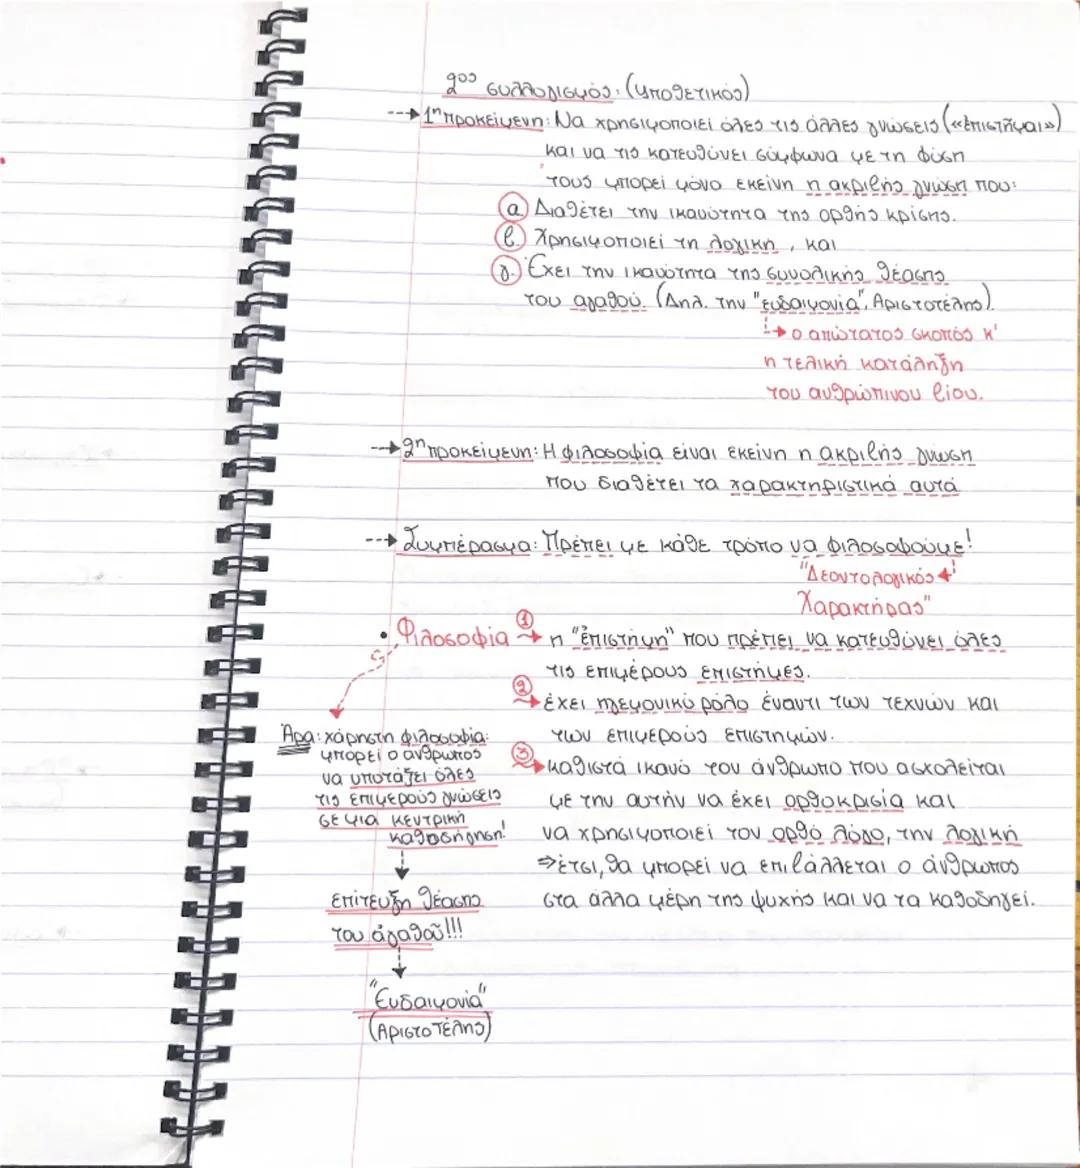 2ος συλλογισμός: (υποθετικός)
1η προκείμενη: Να χρησιμοποιεί όλες τις άλλες γνώσεις («ἐπιστῆμαι»)
και να τις κατευθύνει σύμφωνα με τη φύση
τους μπορεί μόνο εκείνη η ακριβής γνώση που:
α. Διαθέτει την ικανότητα της ορθής κρίσης.
β. Χρησιμοποιεί τη λογική, και
γ. Έχει την ικανότητα της συνολικής θέασης
του αγαθού. (Δηλ. την "ευδαιμονία", Αριστοτέλης).
ο απώτατος σκοπός κ'
η τελική κατάληξη
του ανθρώπινου βίου.
2η προκείμενη: Η φιλοσοφία είναι εκείνη η ακριβής γνώση
που διαθέτει τα χαρακτηριστικά αυτά
Συμπέρασμα: Πρέπει με κάθε τρόπο να φιλοσοφούμε!
"Δεοντολογικός
Χαρακτήρας"
• Φιλοσοφία 1 η "ἐπιστήμη" που πρέπει να κατευθύνει όλες
τις επιμέρους επιστήμες.
2 έχει ηγεμονικό ρόλο έναντι των τεχνών και
των επιμερούς επιστημών.
3 καθιστά ικανό τον άνθρωπο που ασχολείται
με την αυτήν να έχει ορθοκρισία και
να χρησιμοποιεί τον ορθό λόγο, την λογική
⇒ έτσι, θα μπορεί να επιβάλλεται ο άνθρωπος
στα άλλα μέρη της ψυχής και να τα καθοδηγεί.
Άρα: χάρη στη φιλοσοφία
μπορεί ο άνθρωπος
να υποτάξει όλες
τις επιμερούς γνώσεις
σε μια κεντρική
καθοδήγηση!
επίτευξη θέασης
του ἀγαθοῦ!!!
"Ευδαιμονία"
(Αριστοτέλης)